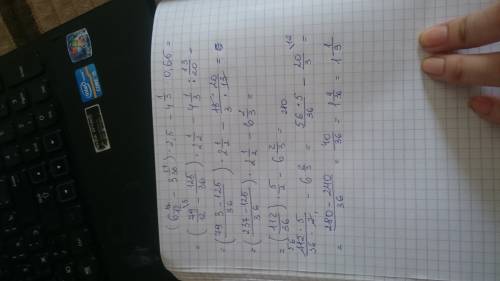 (6 7/12 - 3 17/36) · 2,5 - 4 1/3 : 0,65 =
= (79/12 - 125/36) · 2 1/2 - 4 1/3 : 13/20 =
= (79·3-125/36) · 2 1/2 - 13·20/3·13 =
= (237-125/36) · 2 1/2 - 6 2/3 =
= (112/36) · 5/2 - 6 2/3 =
112·5/36·2 - 6 2/3 = 56·5/36 - 20/3 =
= 280-240/36 = 40/36 = 1 4/36 = 1 1/9
intel